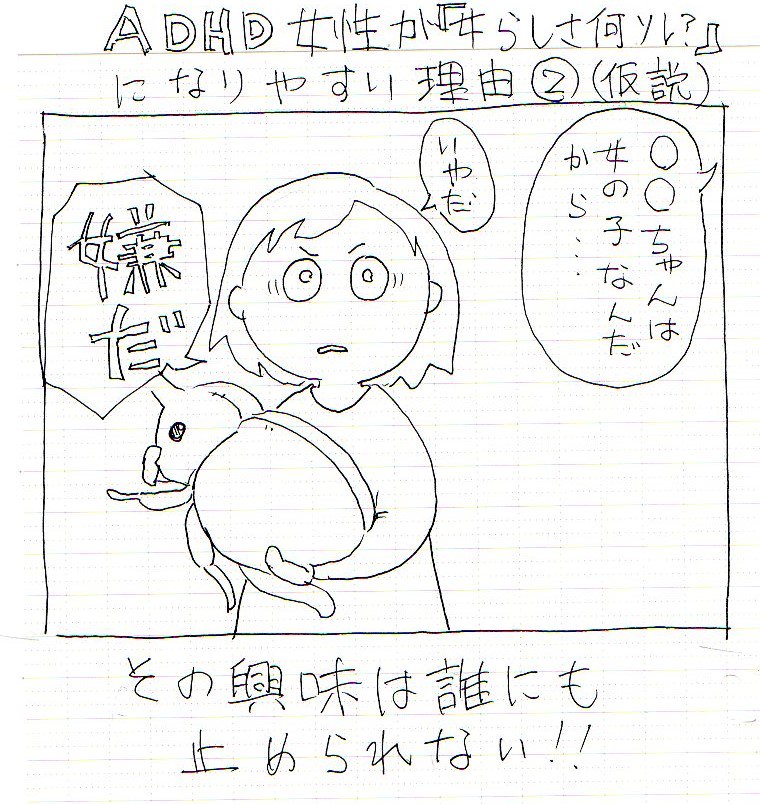 ADHD女性が『女らしさ何ソレ?』
になりやすい理由②(仮説)
○○ちゃんは
女の子なんだ
から…
いやだ
嫌
だ
その興味は誰にも
止められない!!